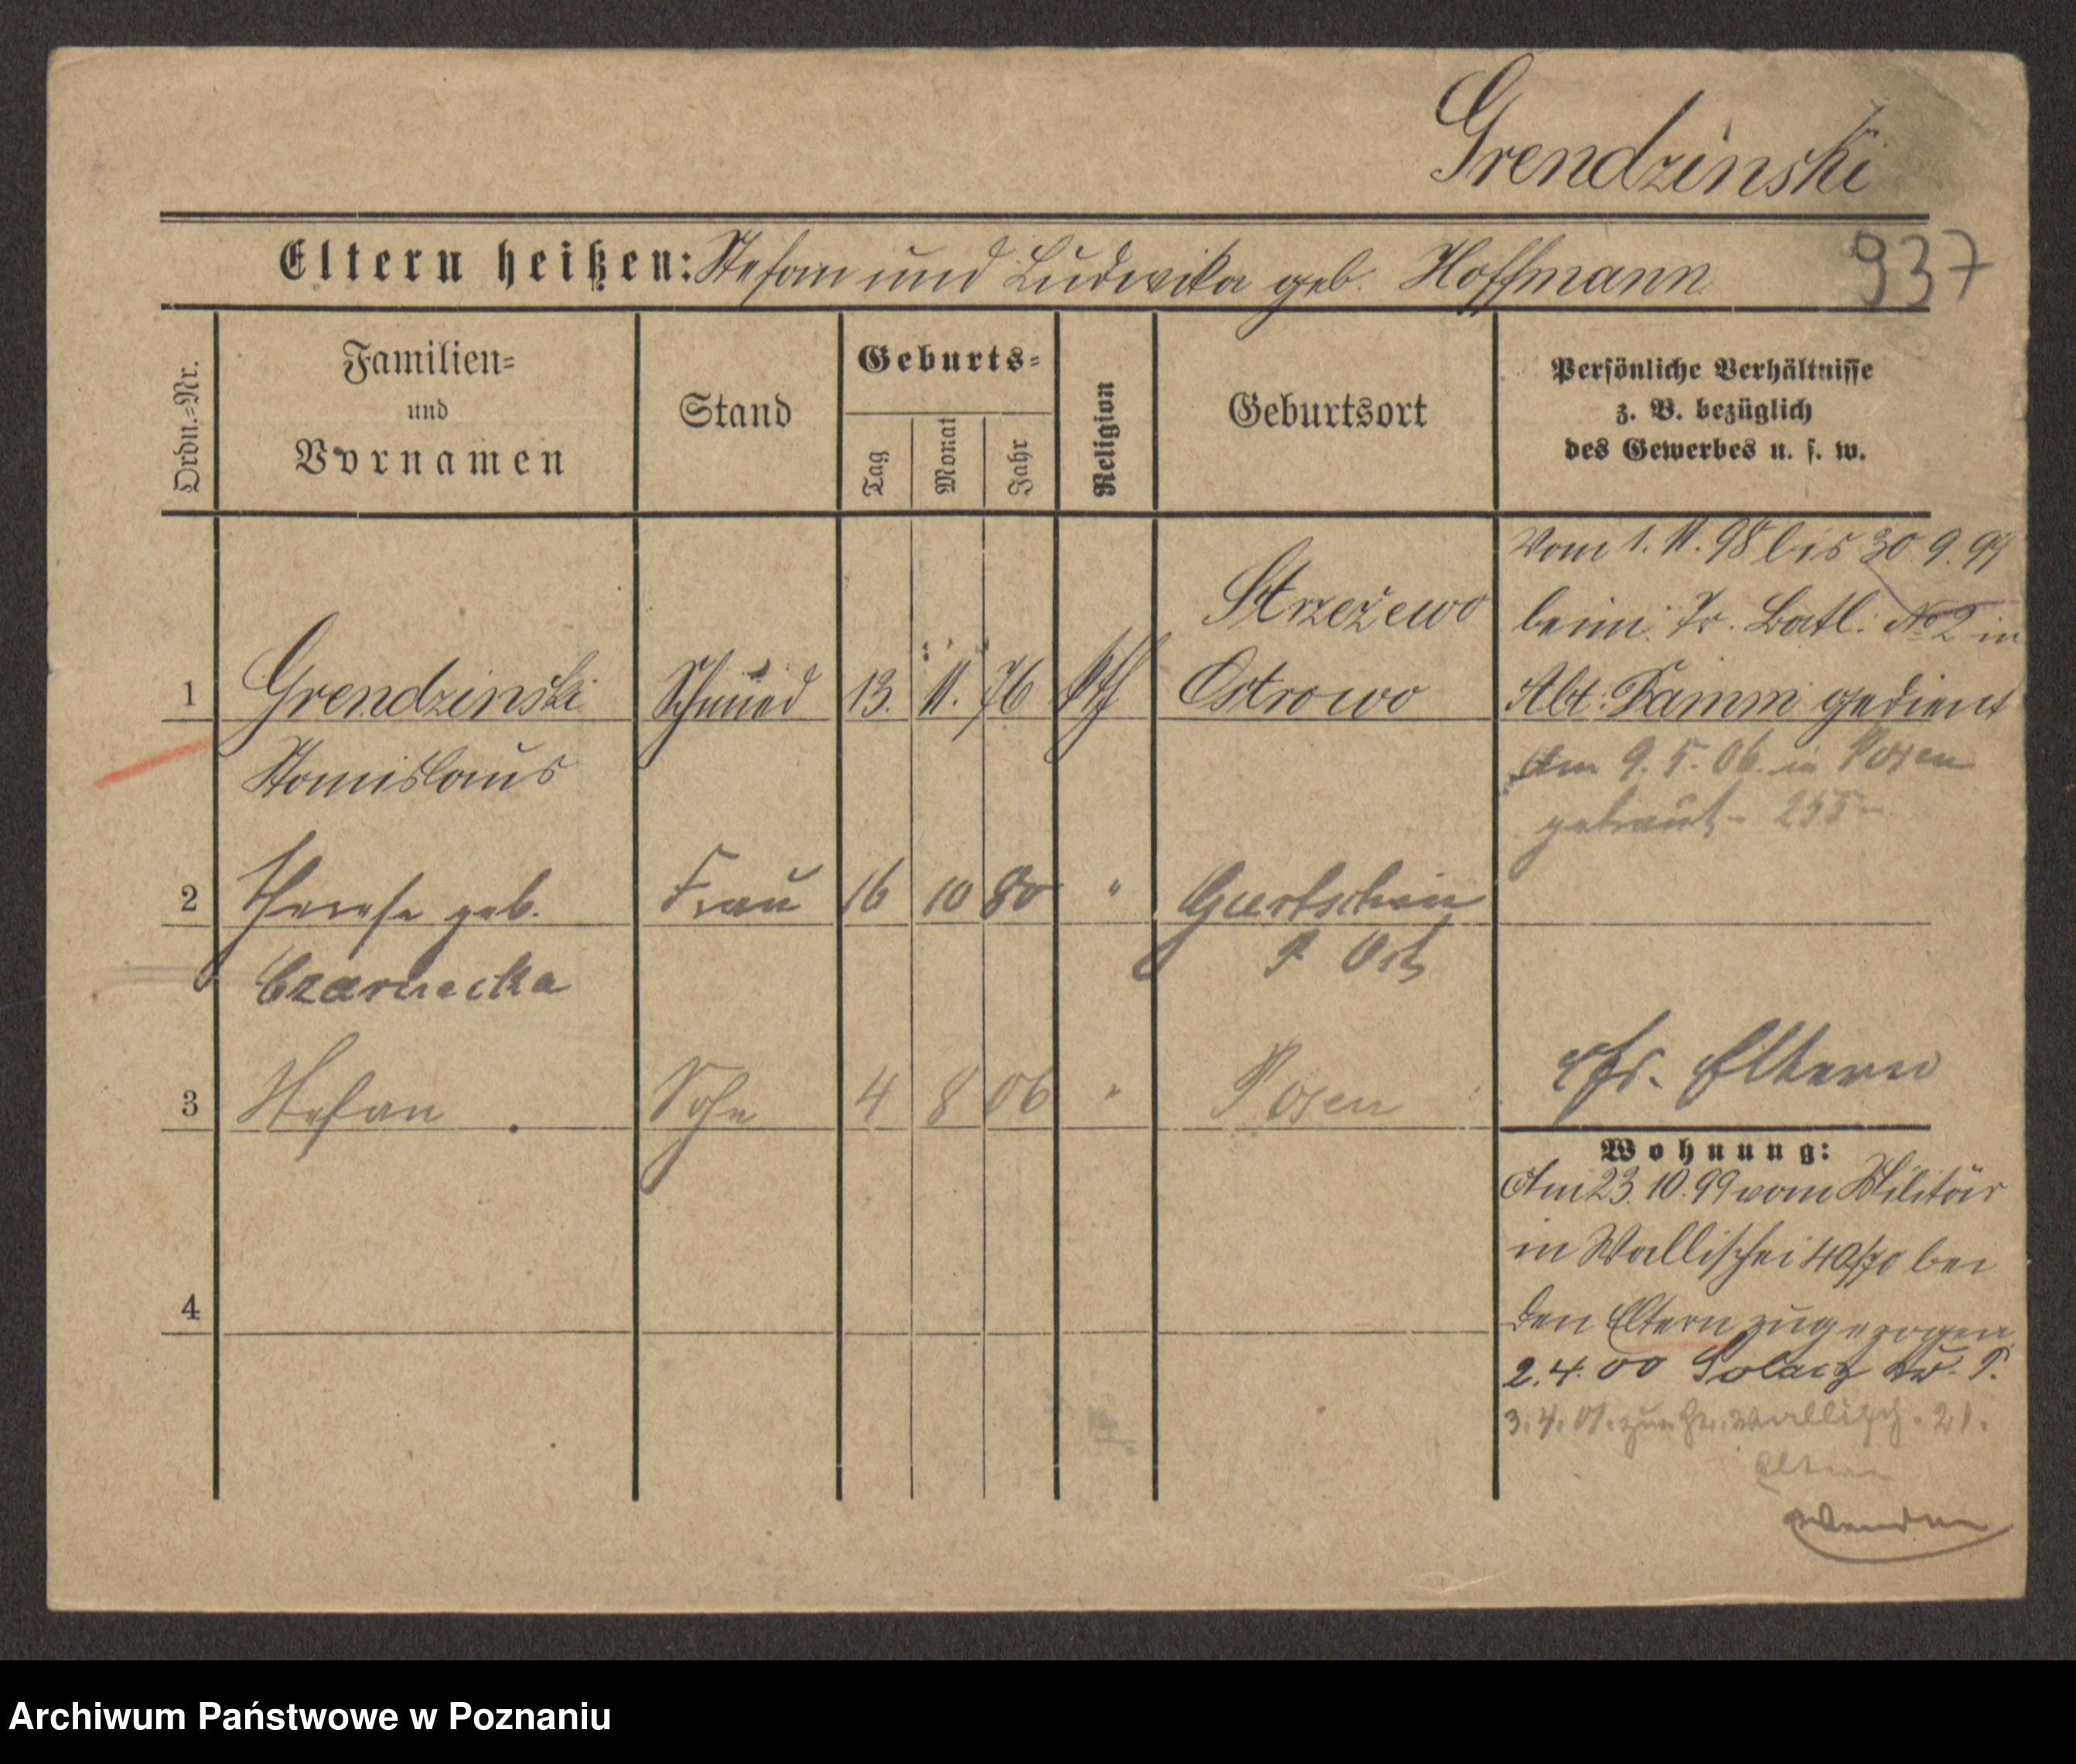 Grendzinski
Eltern heißen: Stefan und Ludwika geb. Hoffmann
937
Ordn.=Nr.
Familien=
und
Vornamen
Stand
Geburts=
Tag
Monat
Jahr
Religion
Geburtsort
Persönliche Verhältnisse
z. B. bezüglich
des Gewerbes u. s. w.
Vom 1. 11. 98 bis 30. 9. 99
beim Tr. Batl. No 2 in
Abt. Damm gedient
Am 9. 5. 06. in Posen
getraut - 255 -
Strzeżewo
1 Grendzinski Schmied 13. 11. 76 kth Ostrowo
Stanislaus
2 Therese geb. Frau 16 10 80 " Gurtschin
Czarnecka
P. Ost
3 Stefan Sohn 4 8 06 " Posen
cfr. Eltern
Wohnung:
Am 23. 10. 99 vom Militär
in Wallischei 40/70 bei
den Eltern zugezogen
2. 4. 00 Solacz Kr. P.
3. 4. 01. zur Gr. Wallisch. 21.
Eltern
4
Wenden
Archiwum Państwowe w Poznaniu